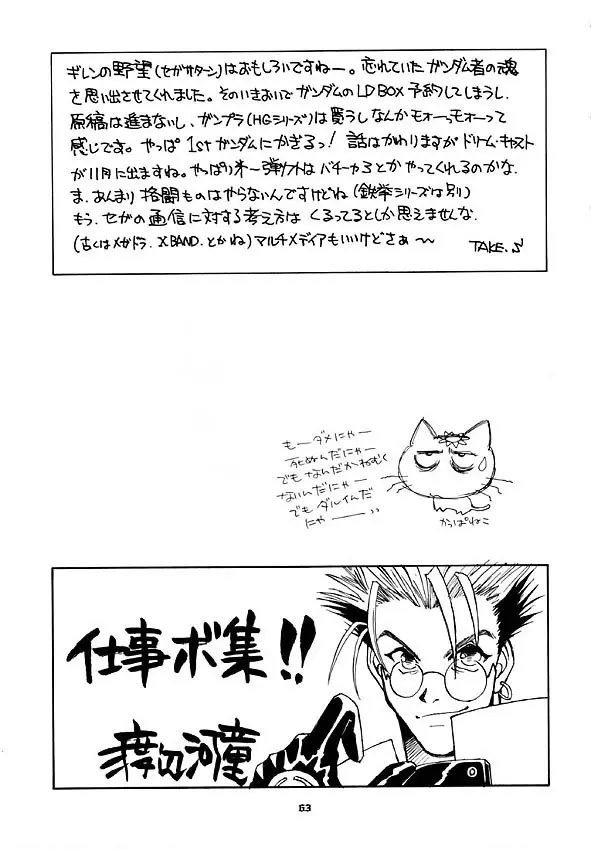 ギレンの野望(セガサターン)はおもしろいですねー。忘れていたガンダム者の魂
を思い出させてくれました。そのいきおいでガンダムのLD BOX 予約してしまうし、
原稿は進まないし、ガンプラ(HGシリーズ)は買うしなんかモォーっモォーって
感じです。やっぱ 1stガンダムにかぎるっ! 話はかわりますがドリーム・キャスト
が11月に出ますね。やっぱり第一弾ソフトはバーチャ3とかやってくれるのかな、
ま、あんまり格闘ものはやらないんですけどね(鉄拳シリーズは別)
もう、セガの通信に対する考え方は くるってるとしか思えませんな、
(古くはメガドラ、XBAND、とかね)マルチメディアもいいけどさぁ〜
TAKE.S
もーダメにゃー
死ぬんだにゃー
でもなんだかねむく
ないんだにゃー
でもダルイんだ
にゃー
かっぱねこ
仕事ボ集!!
渡辺河童
63